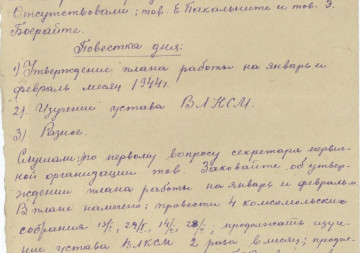 Отсутствовали: тов. Е. Пакальните и тов. Э.
Боерайте.
Повестка дня:
1) Утверждение плана работы на январь и
февраль месяц 1944г.
2) Изучение устава ВЛКСМ.
3) Разное.
Слушали: по первому вопросу секретаря первич-
ной организации тов. Заковайте об утвер-
ждении плана работы на январь и февраль м.
В плане намечено: провести 4 комсомольских
собрания продолжать изуче-
ние устава ВЛКСМ 2 раза в месяц; продол-